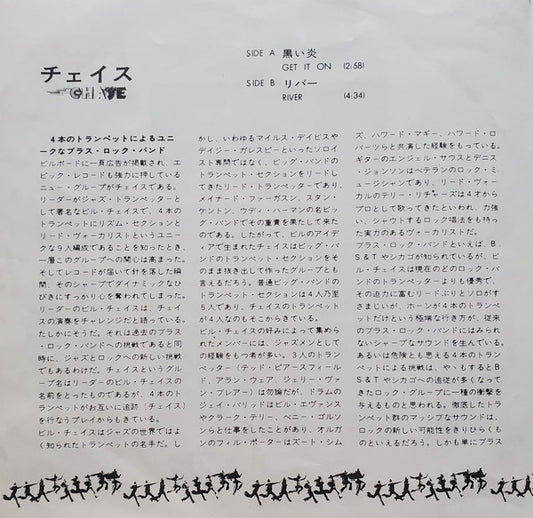 チェイス
CHASE
SIDE A 黒い炎
GET IT ON (2:58)
SIDE B リバー
RIVER (4:34)
4本のトランペットによるユニ
ークなブラス・ロック・バンド
ビルボードに一頁広告が掲載され、エ
ピック・レコードも強力に押している
ニュー・グループがチェイスである。
リーダーがジャズ・トランペッターと
して著名なビル・チェイスで、4本の
トランペットにリズム・セクションと
リード・ヴォーカリストというユニー
クな9人編成であることを知ったとき、
一層このグループへの関心は高まった。
そしてレコードが届いて針を落した瞬
間、そのシャープでダイナミックなひ
びきにすっかり心を奪われてしまった。
リーダーのビル・チェイスは、チェイ
スの演奏をチャレンジだと語っている。
たしかにそうだ。それは過去のブラス
・ロック・バンドへの挑戦であると同
時に、ジャズとロックへの新しい挑戦
でもあるわけだ。チェイスというグル
ープ名はリーダーのビル・チェイスの
名前をとったものであるが、4本のト
ランペットがお互いに追跡(チェイス)
を行なうプレイからもきている。
ビル・チェイスはジャズの世界ではよ
く知られたトランペットの名手だ。し
かし、いわゆるマイルス・デイビスや
デイジー・ガレスピーといったソロイ
スト専門ではなく、ビッグ・バンドの
トランペット・セクションをリードし
てきたリード・トランペッターであり、
メイナード・ファーガスン、スタン・
ケントン、ウディ・ハーマンの名ビッ
グ・バンドでその重責を果たして来た
のである。したがって、ビルのアイデ
ィアで生まれたチェイスはビッグ・バン
ドのトランペット・セクションをその
まま抜き出して作ったグループとも
言えるだろう。普通ビッグ・バンドの
トランペット・セクションは4人乃至
5人であり、チェイスのトランペット
が4人なのもそこからきている。
ビル・チェイスの好みによって集めら
れたメンバーには、ジャズメンとして
の経験をもつ者が多い。3人のトラン
ペッター(テッド・ピアースフィール
ド、アラン・ウェア、ジェリー・ヴァ
ン・ブレアー)は勿論だが、ドラムの
ジェイ・バリッドはビル・エヴァンス
やクラーク・テリー、ベニー・ゴルソ
ンらと仕事をしたことがあり、オルガ
ンのフィル・ポーターはズート・シム
ズ、ハワード・マギー、ハワード・ロ
バーツらと共演した経験をもっている。
ギターのエンジェル・サウスとデニス
・ジョンソンはベテランのロック・ミ
ュージシャンであり、リード・ヴォー
カルのテリー・リチャーズは4才から
プロとして歌ってきたといわれ、力強
い、シャウトするロック唱法をも持っ
た実力のあるヴォーカリストだ。
ブラス・ロック・バンドといえば、B.
S&Tやシカゴが知られているが、ビ
ル・チェイスは現在のどのロック・バ
ンドのトランペッターよりも優秀で、
その迫力に富むリードぶりとソロがす
さまじいが、ホーンが4本のトランペ
ットだけという極端な行き方が、従来
のブラス・ロック・バンドにはみられ
ないシャープなサウンドを生んでいる。
あるいは危険とも思える4本のトラン
ペットによる挑戦は、やゝもするとB.
S&Tやシカゴへの追従が多くなって
きたロック・グループに一種の衝撃
を与えるものと思われる。徹底したト
ランペット群のマッシブなサウンドは、
ロックの新しい可能性をきりひらくも
のといえるだろう。しかも単にブラス